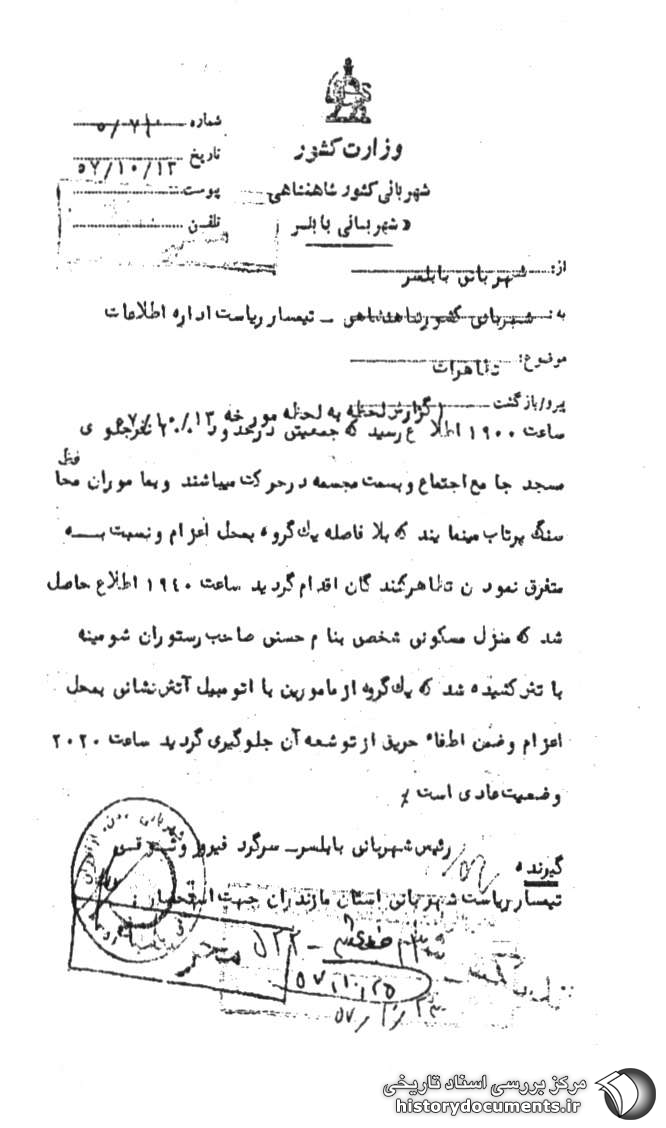 وزارت کشور
شهربانی کشور شاهنشاهی
شهربانی بابلسر
شماره ۵/۷۱۰
تاریخ ۵۷/۱۰/۱۳
پیوست
تلفن
از: شهربانی بابلسر
به: شهربانی کشور شاهنشاهی – تیمسار ریاست اداره اطلاعات
موضوع: تظاهرات
پیرو/بازگشت (گزارش لحظه به لحظه مورخه ۵۷/۱۰/۱۳
ساعت ۱۹۰۰ اطلاع رسید که جمعیتی در حدود نفر جلوی
مسجد جامع اجتماع و بسمت مجسمه در حرکت میباشند و بماموران محافظ
سنگ پرتاب مینمایند که بلا فاصله یک گروه بمحل اعزام و نسبت بــه
متفرق نمودن تظاهرکنندگان اقدام گردید ساعت ۱۹۴۰ اطلاع حاصل
شد که منزل مسکونی شخصی بنام حسنی صاحب رستوران شومینه
با تش کشیده شد که یک گروه از مامورین با اتومبیل آتش نشانی بمحل
اعزام و ضمن اطفاء حریق از توسعه آن جلوگیری گردید ساعت ۲۰۲۰
وضعیت عادی است
رئیس شهربانی بابلسر– سرگرد فیروز
گیرنده
تیمسار ریاست شهربانی استان مازندران جهت استحضار
۵۲۲
۵۷/۱۰/۲۵
مرکز بررسی اسناد تاریخی
historydocuments.ir